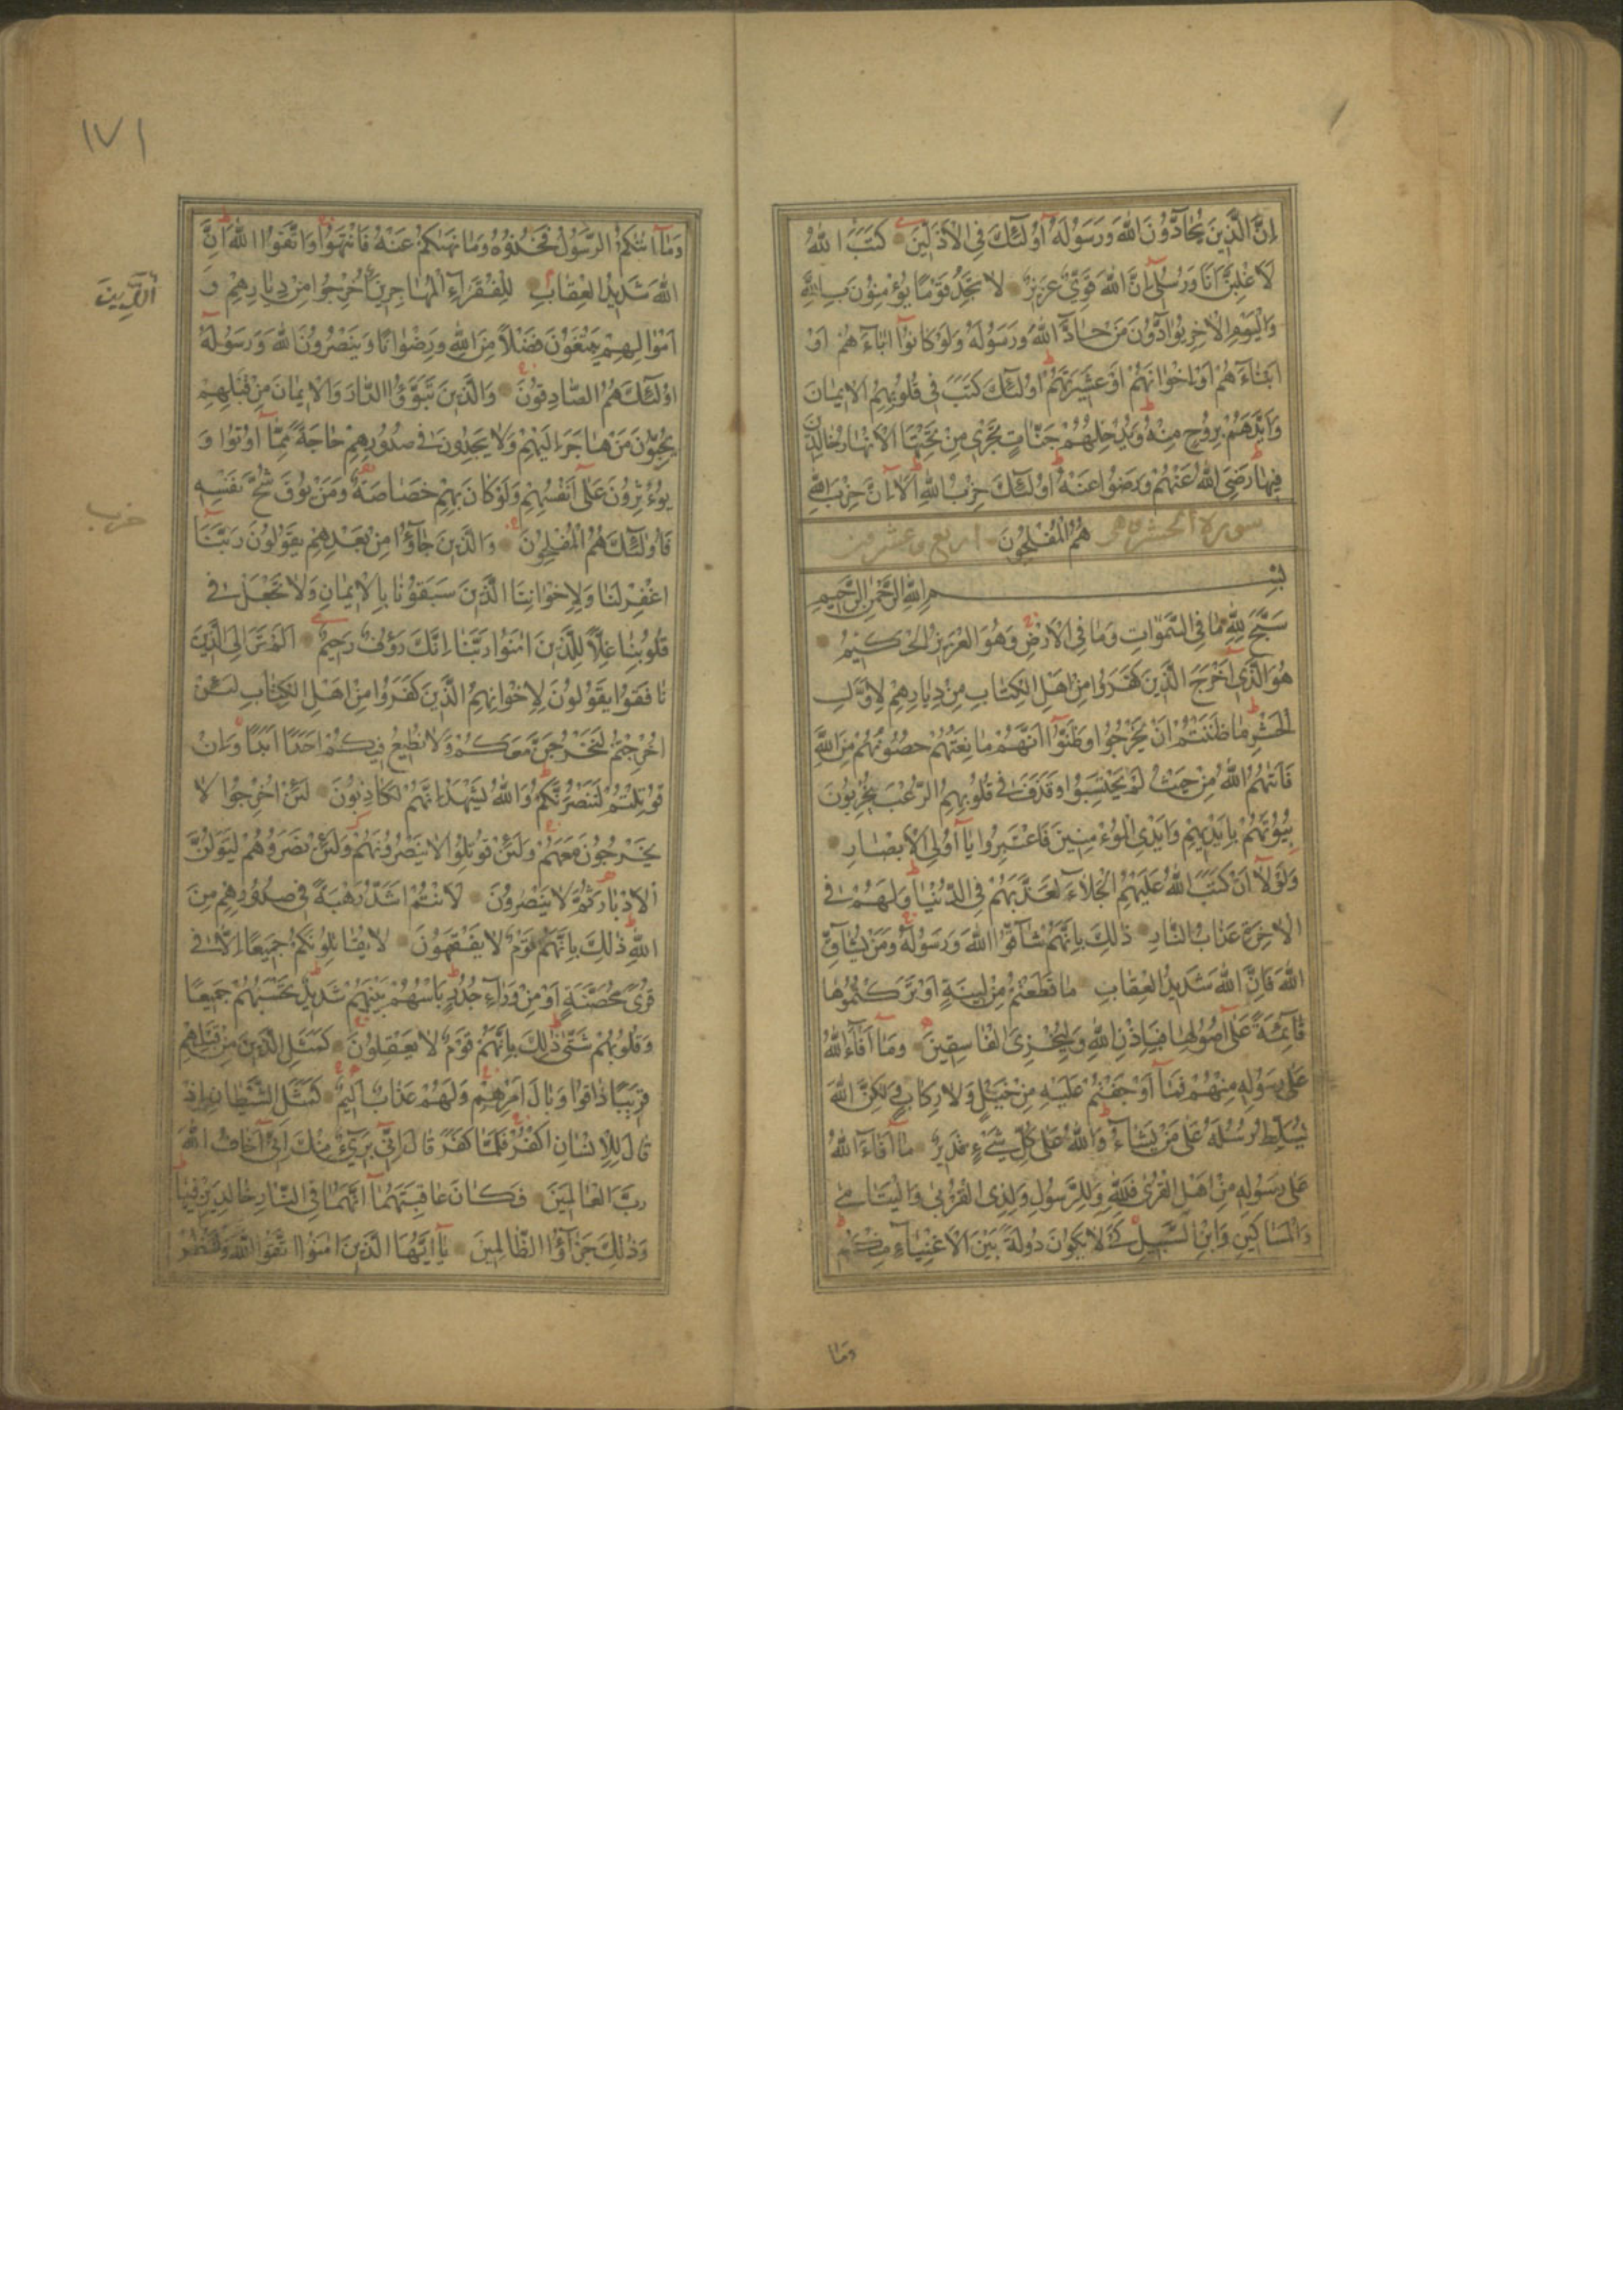 إِنَّ الَّذِينَ يُحَادُّونَ اللَّهَ وَرَسُولَهُ أُولَئِكَ فِي الْأَذَلِّينَ كَتَبَ اللَّهُ
لَأَغْلِبَنَّ أَنَا وَرُسُلِي إِنَّ اللَّهَ قَوِيٌّ عَزِيزٌ لَا تَجِدُ قَوْمًا يُؤْمِنُونَ بِاللَّهِ
وَالْيَوْمِ الْآخِرِ يُوَادُّونَ مَنْ حَادَّ اللَّهَ وَرَسُولَهُ وَلَوْ كَانُوا آبَاءَهُمْ أَوْ
أَبْنَاءَهُمْ أَوْ إِخْوَانَهُمْ أَوْ عَشِيرَتَهُمْ أُولَئِكَ كَتَبَ فِي قُلُوبِهِمُ الْإِيمَانَ
وَأَيَّدَهُمْ بِرُوحٍ مِنْهُ وَيُدْخِلُهُمْ جَنَّاتٍ تَجْرِي مِنْ تَحْتِهَا الْأَنْهَارُ خَالِدِينَ
فِيهَا رَضِيَ اللَّهُ عَنْهُمْ وَرَضُوا عَنْهُ أُولَئِكَ حِزْبُ اللَّهِ أَلَا إِنَّ حِزْبَ اللَّهِ
سورة الحشر هُمُ الْمُفْلِحُونَ اربع وعشرون
بِسْمِ اللَّهِ الرَّحْمَنِ الرَّحِيمِ
سَبَّحَ لِلَّهِ مَا فِي السَّمَوَاتِ وَمَا فِي الْأَرْضِ وَهُوَ الْعَزِيزُ الْحَكِيمُ
هُوَ الَّذِي أَخْرَجَ الَّذِينَ كَفَرُوا مِنْ أَهْلِ الْكِتَابِ مِنْ دِيَارِهِمْ لِأَوَّلِ
الْحَشْرِ مَا ظَنَنْتُمْ أَنْ يَخْرُجُوا وَظَنُّوا أَنَّهُمْ مَانِعَتُهُمْ حُصُونُهُمْ مِنَ اللَّهِ
فَأَتَيهُمُ اللَّهُ مِنْ حَيْثُ لَمْ يَحْتَسِبُوا وَقَذَفَ فِي قُلُوبِهِمُ الرُّعْبَ يُخْرِبُونَ
بُيُوتَهُمْ بِأَيْدِيهِمْ وَأَيْدِي الْمُؤْمِنِينَ فَاعْتَبِرُوا يَا أُولِي الْأَبْصَارِ
وَلَوْلَا أَنْ كَتَبَ اللَّهُ عَلَيْهِمُ الْجَلَاءَ لَعَذَّبَهُمْ فِي الدُّنْيَا وَلَهُمْ فِي
الْآخِرَةِ عَذَابُ النَّارِ ذَلِكَ بِأَنَّهُمْ شَاقُّوا اللَّهَ وَرَسُولَهُ وَمَنْ يُشَاقِّ
اللَّهَ فَإِنَّ اللَّهَ شَدِيدُ الْعِقَابِ مَا قَطَعْتُمْ مِنْ لِينَةٍ أَوْ تَرَكْتُمُوهَا
قَائِمَةً عَلَى أُصُولِهَا فَبِإِذْنِ اللَّهِ وَلِيُخْزِيَ الْفَاسِقِينَ وَمَا أَفَاءَ اللَّهُ
عَلَى رَسُولِهِ مِنْهُمْ فَمَا أَوْجَفْتُمْ عَلَيْهِ مِنْ خَيْلٍ وَلَا رِكَابٍ وَلَكِنَّ اللَّهَ
يُسَلِّطُ رُسُلَهُ عَلَى مَنْ يَشَاءُ وَاللَّهُ عَلَى كُلِّ شَيْءٍ قَدِيرٌ مَا أَفَاءَ اللَّهُ
عَلَى رَسُولِهِ مِنْ أَهْلِ الْقُرَى فَلِلَّهِ وَلِلرَّسُولِ وَلِذِي الْقُرْبَى وَالْيَتَامَى
وَالْمَسَاكِينِ وَابْنِ السَّبِيلِ كَيْ لَا يَكُونَ دُولَةً بَيْنَ الْأَغْنِيَاءِ مِنْكُمْ
وَمَا
١٧١
وَمَا آتَيكُمُ الرَّسُولُ فَخُذُوهُ وَمَا نَهَيكُمْ عَنْهُ فَانْتَهُوا وَاتَّقُوا اللَّهَ إِنَّ
اللَّهَ شَدِيدُ الْعِقَابِ لِلْفُقَرَاءِ الْمُهَاجِرِينَ أُخْرِجُوا مِنْ دِيَارِهِمْ وَ
الَّذِينَ
أَمْوَالِهِمْ يَبْتَغُونَ فَضْلًا مِنَ اللَّهِ وَرِضْوَانًا وَيَنْصُرُونَ اللَّهَ وَرَسُولَهُ
أُولَئِكَ هُمُ الصَّادِقُونَ وَالَّذِينَ تَبَوَّؤُا الدَّارَ وَالْإِيمَانَ مِنْ قَبْلِهِمْ
يُحِبُّونَ مَنْ هَاجَرَ إِلَيْهِمْ وَلَا يَجِدُونَ فِي صُدُورِهِمْ حَاجَةً مِمَّا أُوتُوا وَ
يُؤْثِرُونَ عَلَى أَنْفُسِهِمْ وَلَوْ كَانَ بِهِمْ خَصَاصَةٌ وَمَنْ يُوقَ شُحَّ نَفْسِهِ
حزب
فَأُولَئِكَ هُمُ الْمُفْلِحُونَ وَالَّذِينَ جَاؤُا مِنْ بَعْدِهِمْ يَقُولُونَ رَبَّنَا
اغْفِرْ لَنَا وَلِإِخْوَانِنَا الَّذِينَ سَبَقُونَا بِالْإِيمَانِ وَلَا تَجْعَلْ فِي
قُلُوبِنَا غِلًّا لِلَّذِينَ آمَنُوا رَبَّنَا إِنَّكَ رَؤُفٌ رَحِيمٌ أَلَمْ تَرَ إِلَى الَّذِينَ
نَافَقُوا يَقُولُونَ لِإِخْوَانِهِمُ الَّذِينَ كَفَرُوا مِنْ أَهْلِ الْكِتَابِ لَئِنْ
أُخْرِجْتُمْ لَنَخْرُجَنَّ مَعَكُمْ وَلَا نُطِيعُ فِيكُمْ أَحَدًا أَبَدًا وَإِنْ
قُوتِلْتُمْ لَنَنْصُرَنَّكُمْ وَاللَّهُ يَشْهَدُ إِنَّهُمْ لَكَاذِبُونَ لَئِنْ أُخْرِجُوا لَا
يَخْرُجُونَ مَعَهُمْ وَلَئِنْ قُوتِلُوا لَا يَنْصُرُونَهُمْ وَلَئِنْ نَصَرُوهُمْ لَيُوَلُّنَّ
الْأَدْبَارَ ثُمَّ لَا يُنْصَرُونَ لَأَنْتُمْ أَشَدُّ رَهْبَةً فِي صُدُورِهِمْ مِنَ
اللَّهِ ذَلِكَ بِأَنَّهُمْ قَوْمٌ لَا يَفْقَهُونَ لَا يُقَاتِلُونَكُمْ جَمِيعًا إِلَّا فِي
قُرًى مُحَصَّنَةٍ أَوْ مِنْ وَرَاءِ جُدُرٍ بَأْسُهُمْ بَيْنَهُمْ شَدِيدٌ تَحْسَبُهُمْ جَمِيعًا
وَقُلُوبُهُمْ شَتَّى ذَلِكَ بِأَنَّهُمْ قَوْمٌ لَا يَعْقِلُونَ كَمَثَلِ الَّذِينَ مِنْ قَبْلِهِمْ
قَرِيبًا ذَاقُوا وَبَالَ أَمْرِهِمْ وَلَهُمْ عَذَابٌ أَلِيمٌ كَمَثَلِ الشَّيْطَانِ إِذْ
قَالَ لِلْإِنْسَانِ اكْفُرْ فَلَمَّا كَفَرَ قَالَ إِنِّي بَرِيءٌ مِنْكَ إِنِّي أَخَافُ اللَّهَ
رَبَّ الْعَالَمِينَ فَكَانَ عَاقِبَتَهُمَا أَنَّهُمَا فِي النَّارِ خَالِدَيْنِ فِيهَا
وَذَلِكَ جَزَاؤُا الظَّالِمِينَ يَا أَيُّهَا الَّذِينَ آمَنُوا اتَّقُوا اللَّهَ وَلْتَنْظُرْ